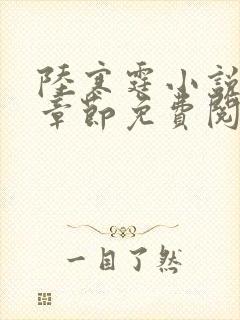 陸寒霆小說
章節免費閱
一目了然